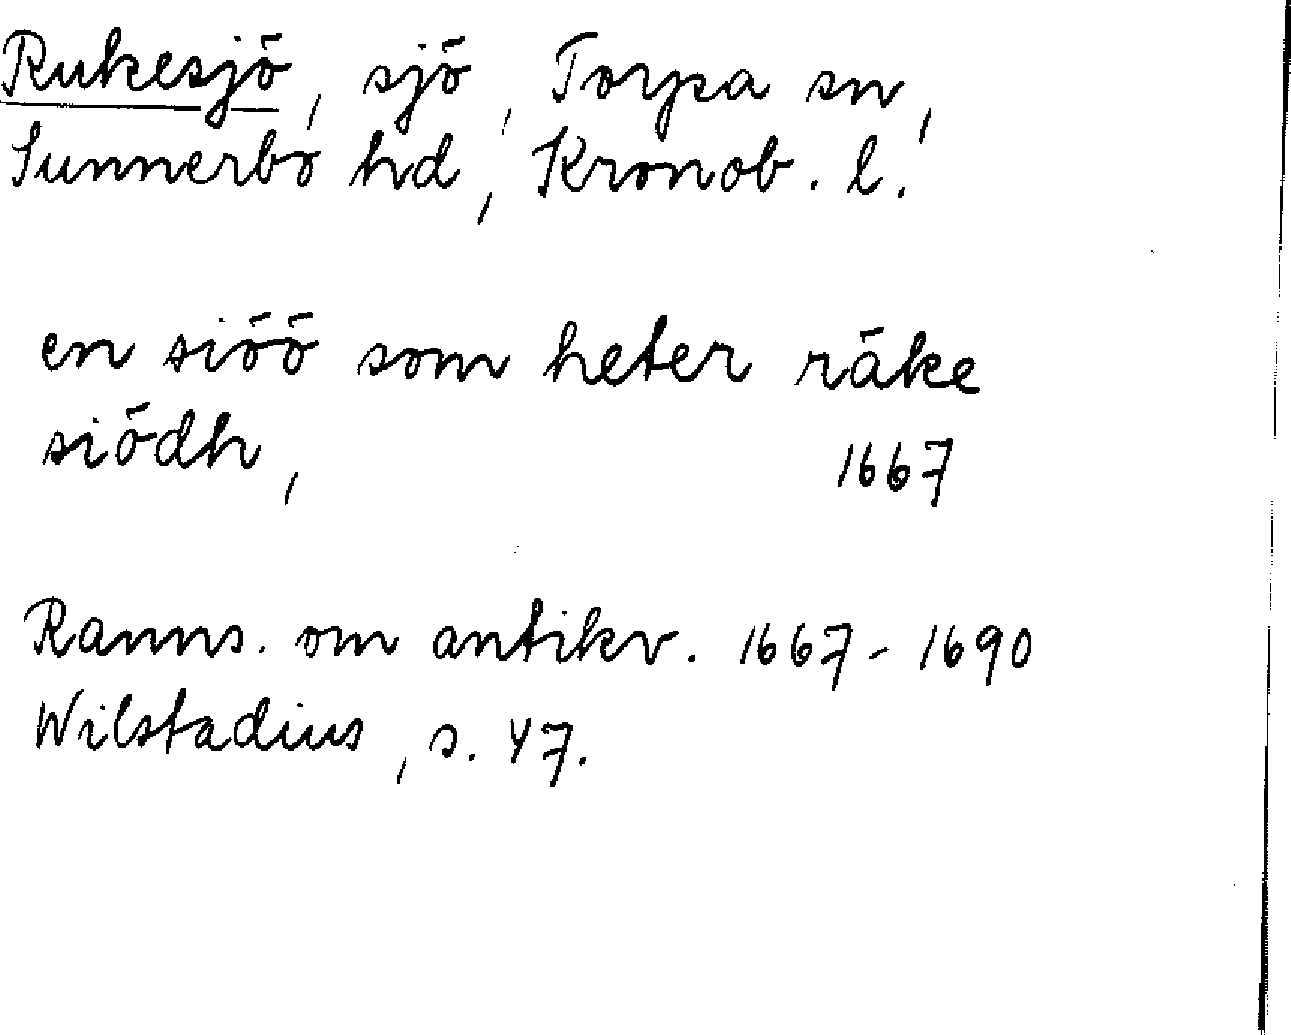 Rukesjö, sjö, Torpa sn,
Sunnerbo hd, Kronob. l.
en siöö som heter räke
siödh, 1667
Ranns. om antikv. 1667-1690
Wilstadius, s. 47.